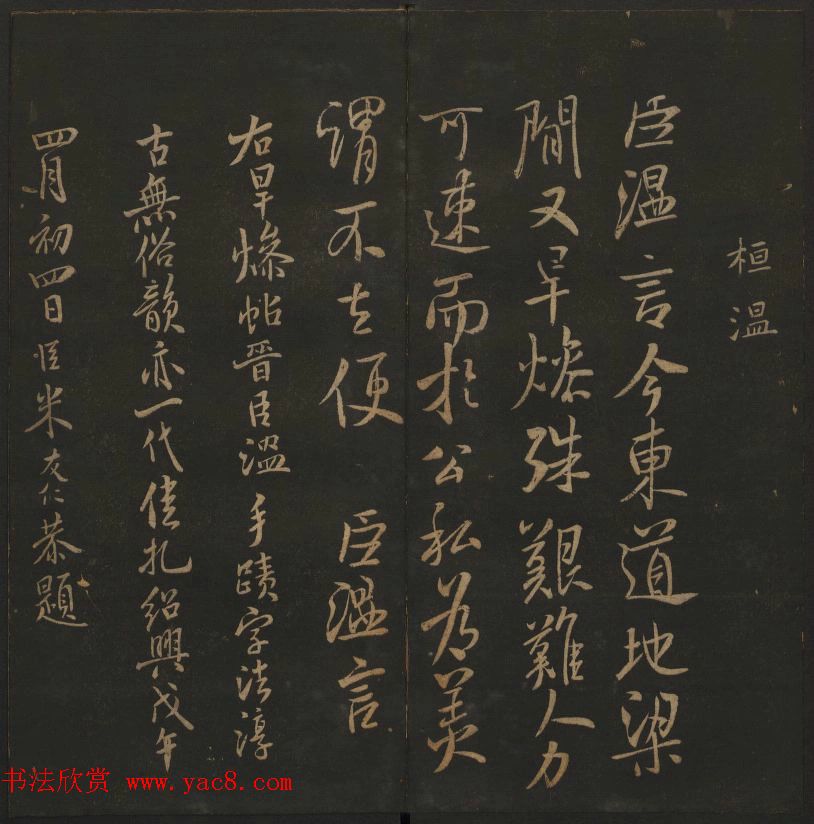 桓温
臣温言今東道地梁
間又旱燥殊艱難人力
可速而於公私為美
謂不去便 臣温言
右旱燥帖晉臣温手蹟字法淳
古無俗韻亦一代佳札紹興戊午
四月初四日臣米友仁恭題
书法欣赏 www.yac8.com